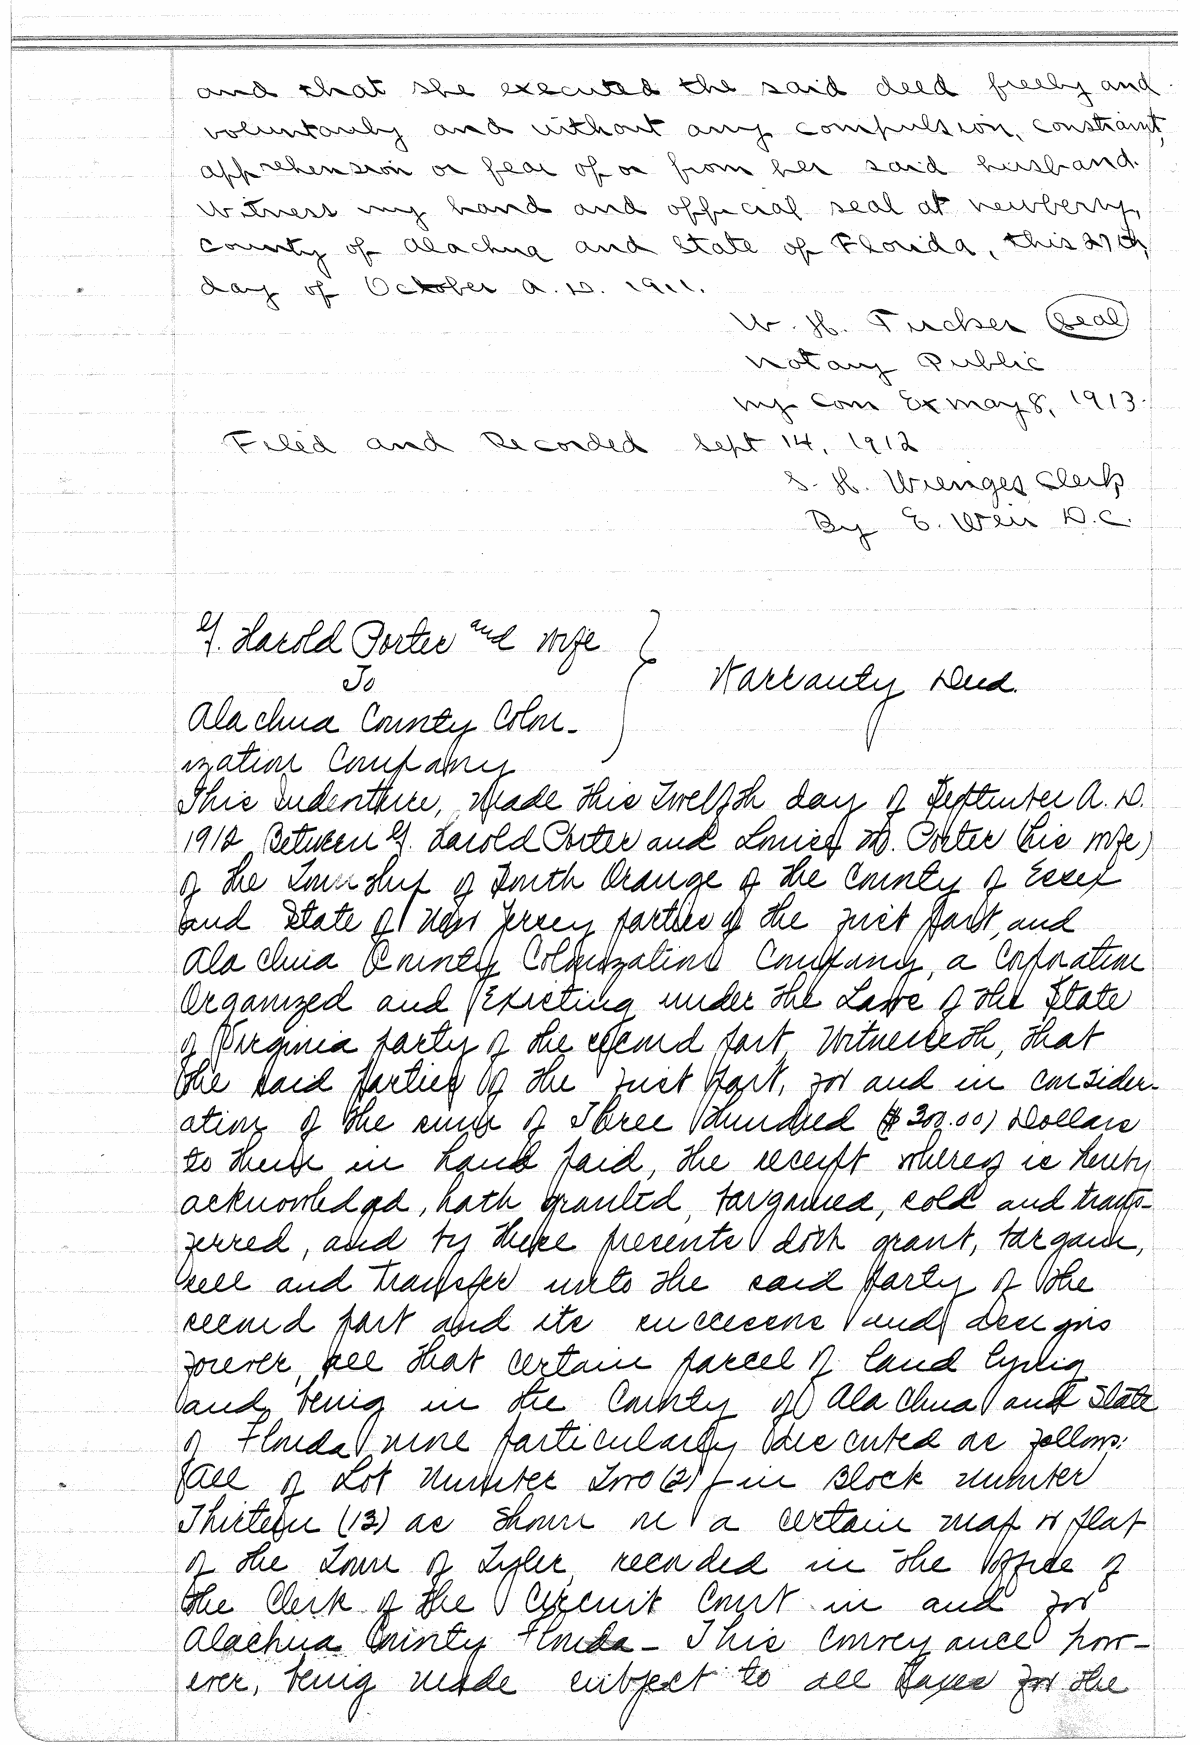 and that she executed the said deed freely and
voluntarily and without any compulsion, constraint,
apprehension or fear of or from her said husband.
Witness my hand and official seal at Newberry,
County of Alachua and State of Florida, this 27th,
day of October A.D. 1911.
W. H. Tucker (Seal)
Notary Public
my Com Ex May 8, 1913.
Filed and Recorded Sept 14, 1912
S. H. Wienges Clerk
By E. Weir D.C.
G. Harold Porter and Wife
To
Warranty Deed.
Alachua County Colon-
ization Company
This Indenture, Made this Twelfth day of September A.D.
1912 Between G. Harold Porter and Louise M. Porter (his wife)
of the Township of South Orange of the County of Essex
and State of New Jersey parties of the first part, and
Alachua County Colonization Company, a Corporation
Organized and Existing under the Laws of the State
of Virginia party of the second part, Witnesseth, that
the said parties of the first part, for and in consider-
ation of the sum of Three Hundred ($300.00) Dollars
to them in hand paid, the receipt whereof is hereby
acknowledged, hath granted, bargained, sold and trans-
ferred, and by these presents doth grant, bargain,
sell and transfer unto the said party of the
second part and its successors and assigns
forever, all that certain parcel of land lying
and being in the County of Alachua and State
of Florida more particularly described as follows:
All of Lot Number Two (2) in Block Number
Thirteen (13) as shown on a certain map or plat
of the Town of Tyler, recorded in the office of
the Clerk of the Circuit Court in and for
Alachua County Florida - This conveyance how-
ever, being made subject to all taxes for the